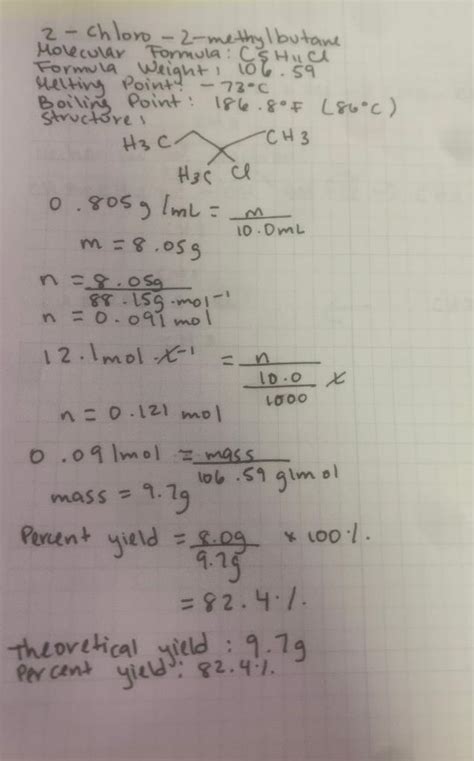 2 - Chloro - 2-methylbutane
Molecular Formula: C5H11Cl
Formula Weight: 106.59
Melting Point: -73°C
Boiling Point: 186.8°F (86°C)
Structure:
H3C CH3
H3C Cl
0.805g/mL = m/10.0mL
m = 8.05g
n = 8.05g/88.15g·mol⁻¹
n = 0.091mol
12.1mol·L⁻¹ = n/(10.0/1000) L
n = 0.121 mol
0.091mol = mass/106.59 g/mol
mass = 9.7g
Percent yield = 8.0g/9.7g × 100%.
= 82.4%.
Theoretical yield: 9.7g
Percent yield: 82.4%